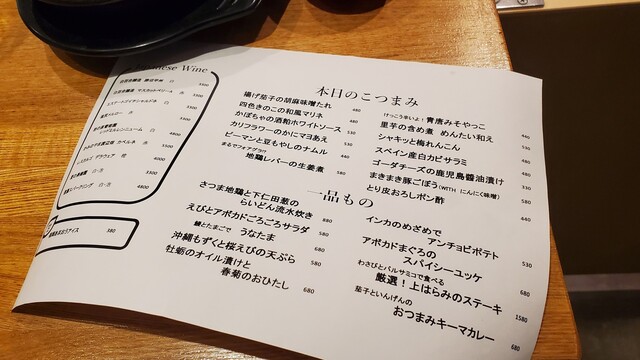 nese Wine
3500
3500
3500
3500
4800
3500
4000
3500
4800
380
本日のこつまみ
揚げ茄子の胡麻味噌たれ 480
四色きのこの和風マリネ 480
かぼちゃの酒粕ホワイトソース 530
カリフラワーのかにマヨあえ 530
ピーマンと豆もやしのナムル 440
まるでフォアグラ!?
地鶏レバーの生姜煮 580
けっこう辛いよ!青唐みそやっこ 440
里芋の含め煮 めんたい和え 530
シャキッと梅れんこん 530
スペイン産白カビサラミ 480
ゴーダチーズの鹿児島醬油漬け 480
まきまき豚ごぼう(WITH にんにく味噌) 580
とり皮おろしポン酢 440
一品もの
さつま地鶏と下仁田葱の
らいどん流水炊き 880
えびとアボカドごろごろサラダ 580
鰻とたまごで うなたま 680
沖縄もずくと桜えびの天ぷら 580
牡蛎のオイル漬けと
春菊のおひたし 680
インカのめざめで
アンチョビポテト 530
アボカドまぐろの
スパイシーユッケ 680
わさびとバルサミコで食べる
厳選!上はらみのステーキ 1580
茄子といんげんの
おつまみキーマカレー 680